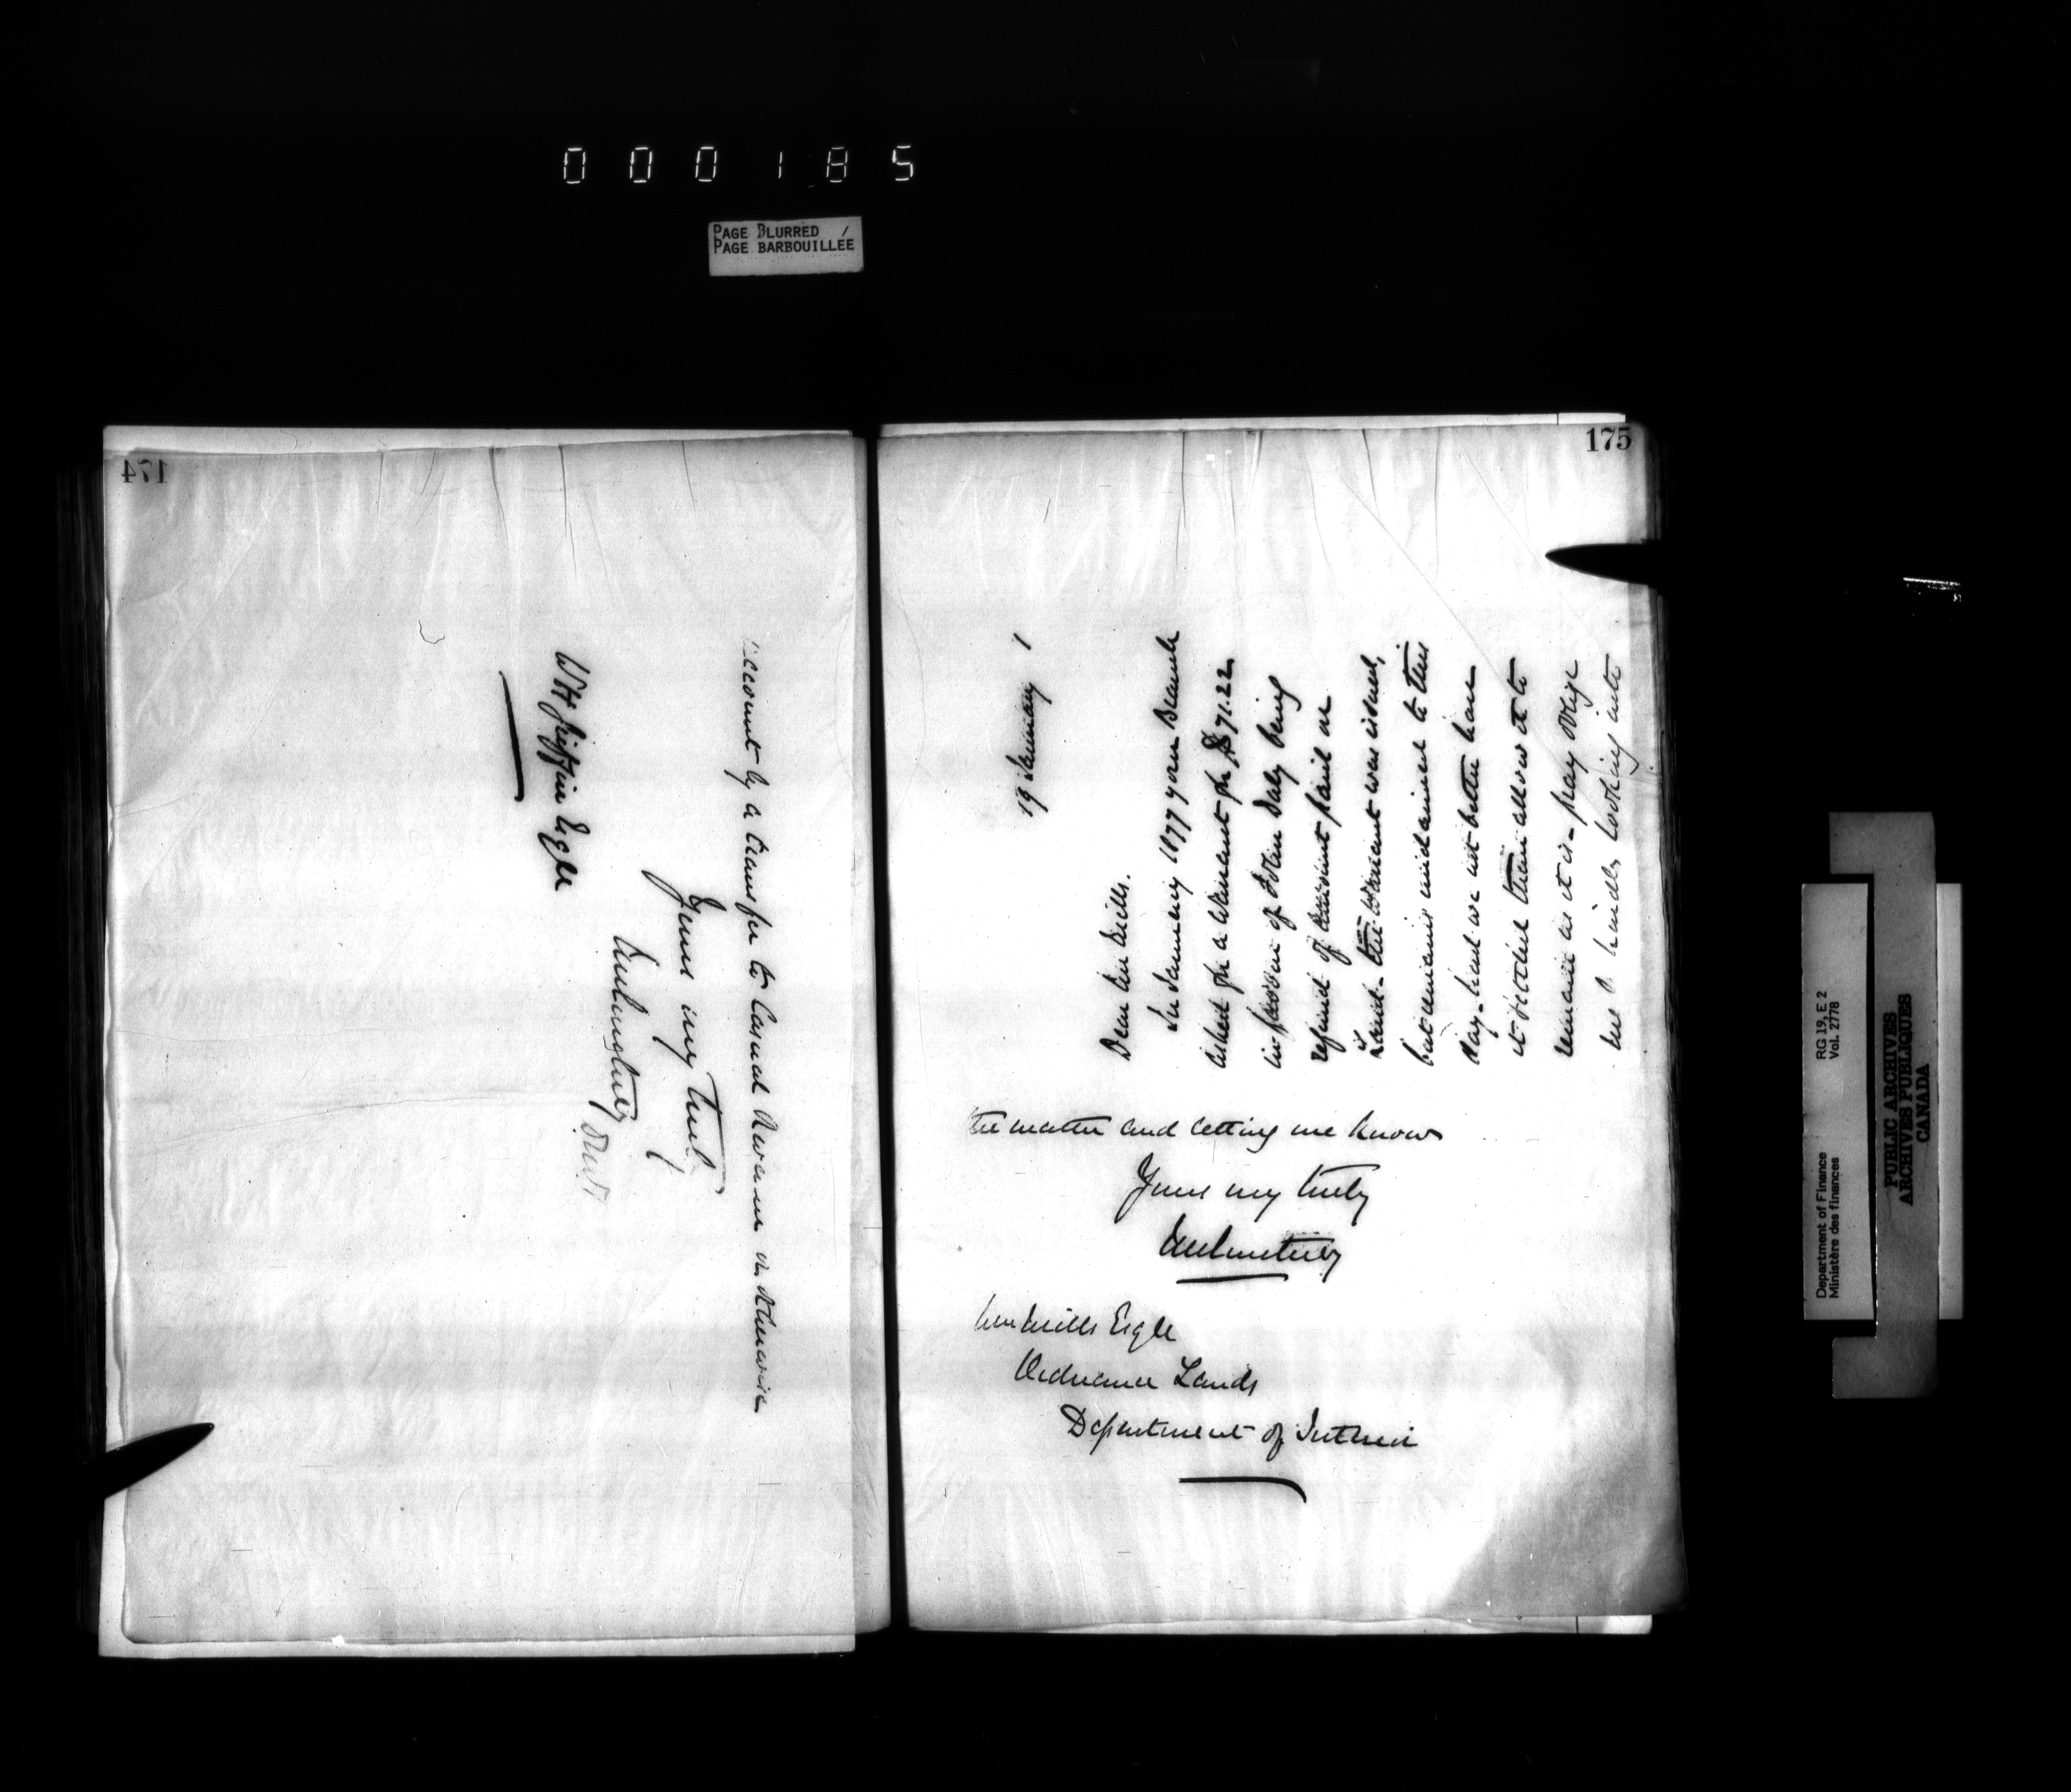 000185
PAGE BLURRED /
PAGE BARBOUILLEE
174
account by a transfer to Casual Revenue or otherwise
Yours very truly
WH Griffin Esqre
175
19 January 1
Dear Mr Mills.
In January 1877 your Branch
asked for a Warrant for $71.22
in favour of John Daly being
refund of amount paid on
Land. The Warrant was issued,
but remains unclaimed to this
day. Had we not better have
it settled than allow it to
remain as it is. pray oblige
me by kindly looking into
the matter and letting me know
Yours very truly
Mills Esqre
Ordnance Lands
Department of Interior
Department of Finance
Ministère des finances
RG 19, E 2
Vol. 2778
PUBLIC ARCHIVES
ARCHIVES PUBLIQUES
CANADA